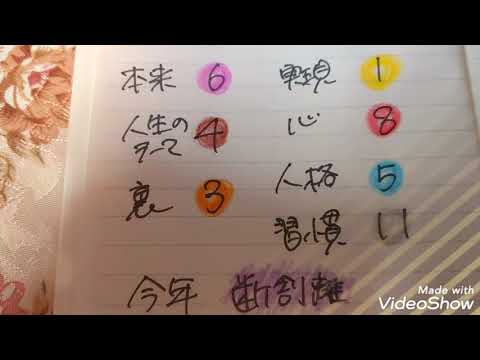 本来 6
1
人生の
テーマ 4
心 8
裏 3
人格 5
習慣 11
今年 断割離
Made with
VideoShow